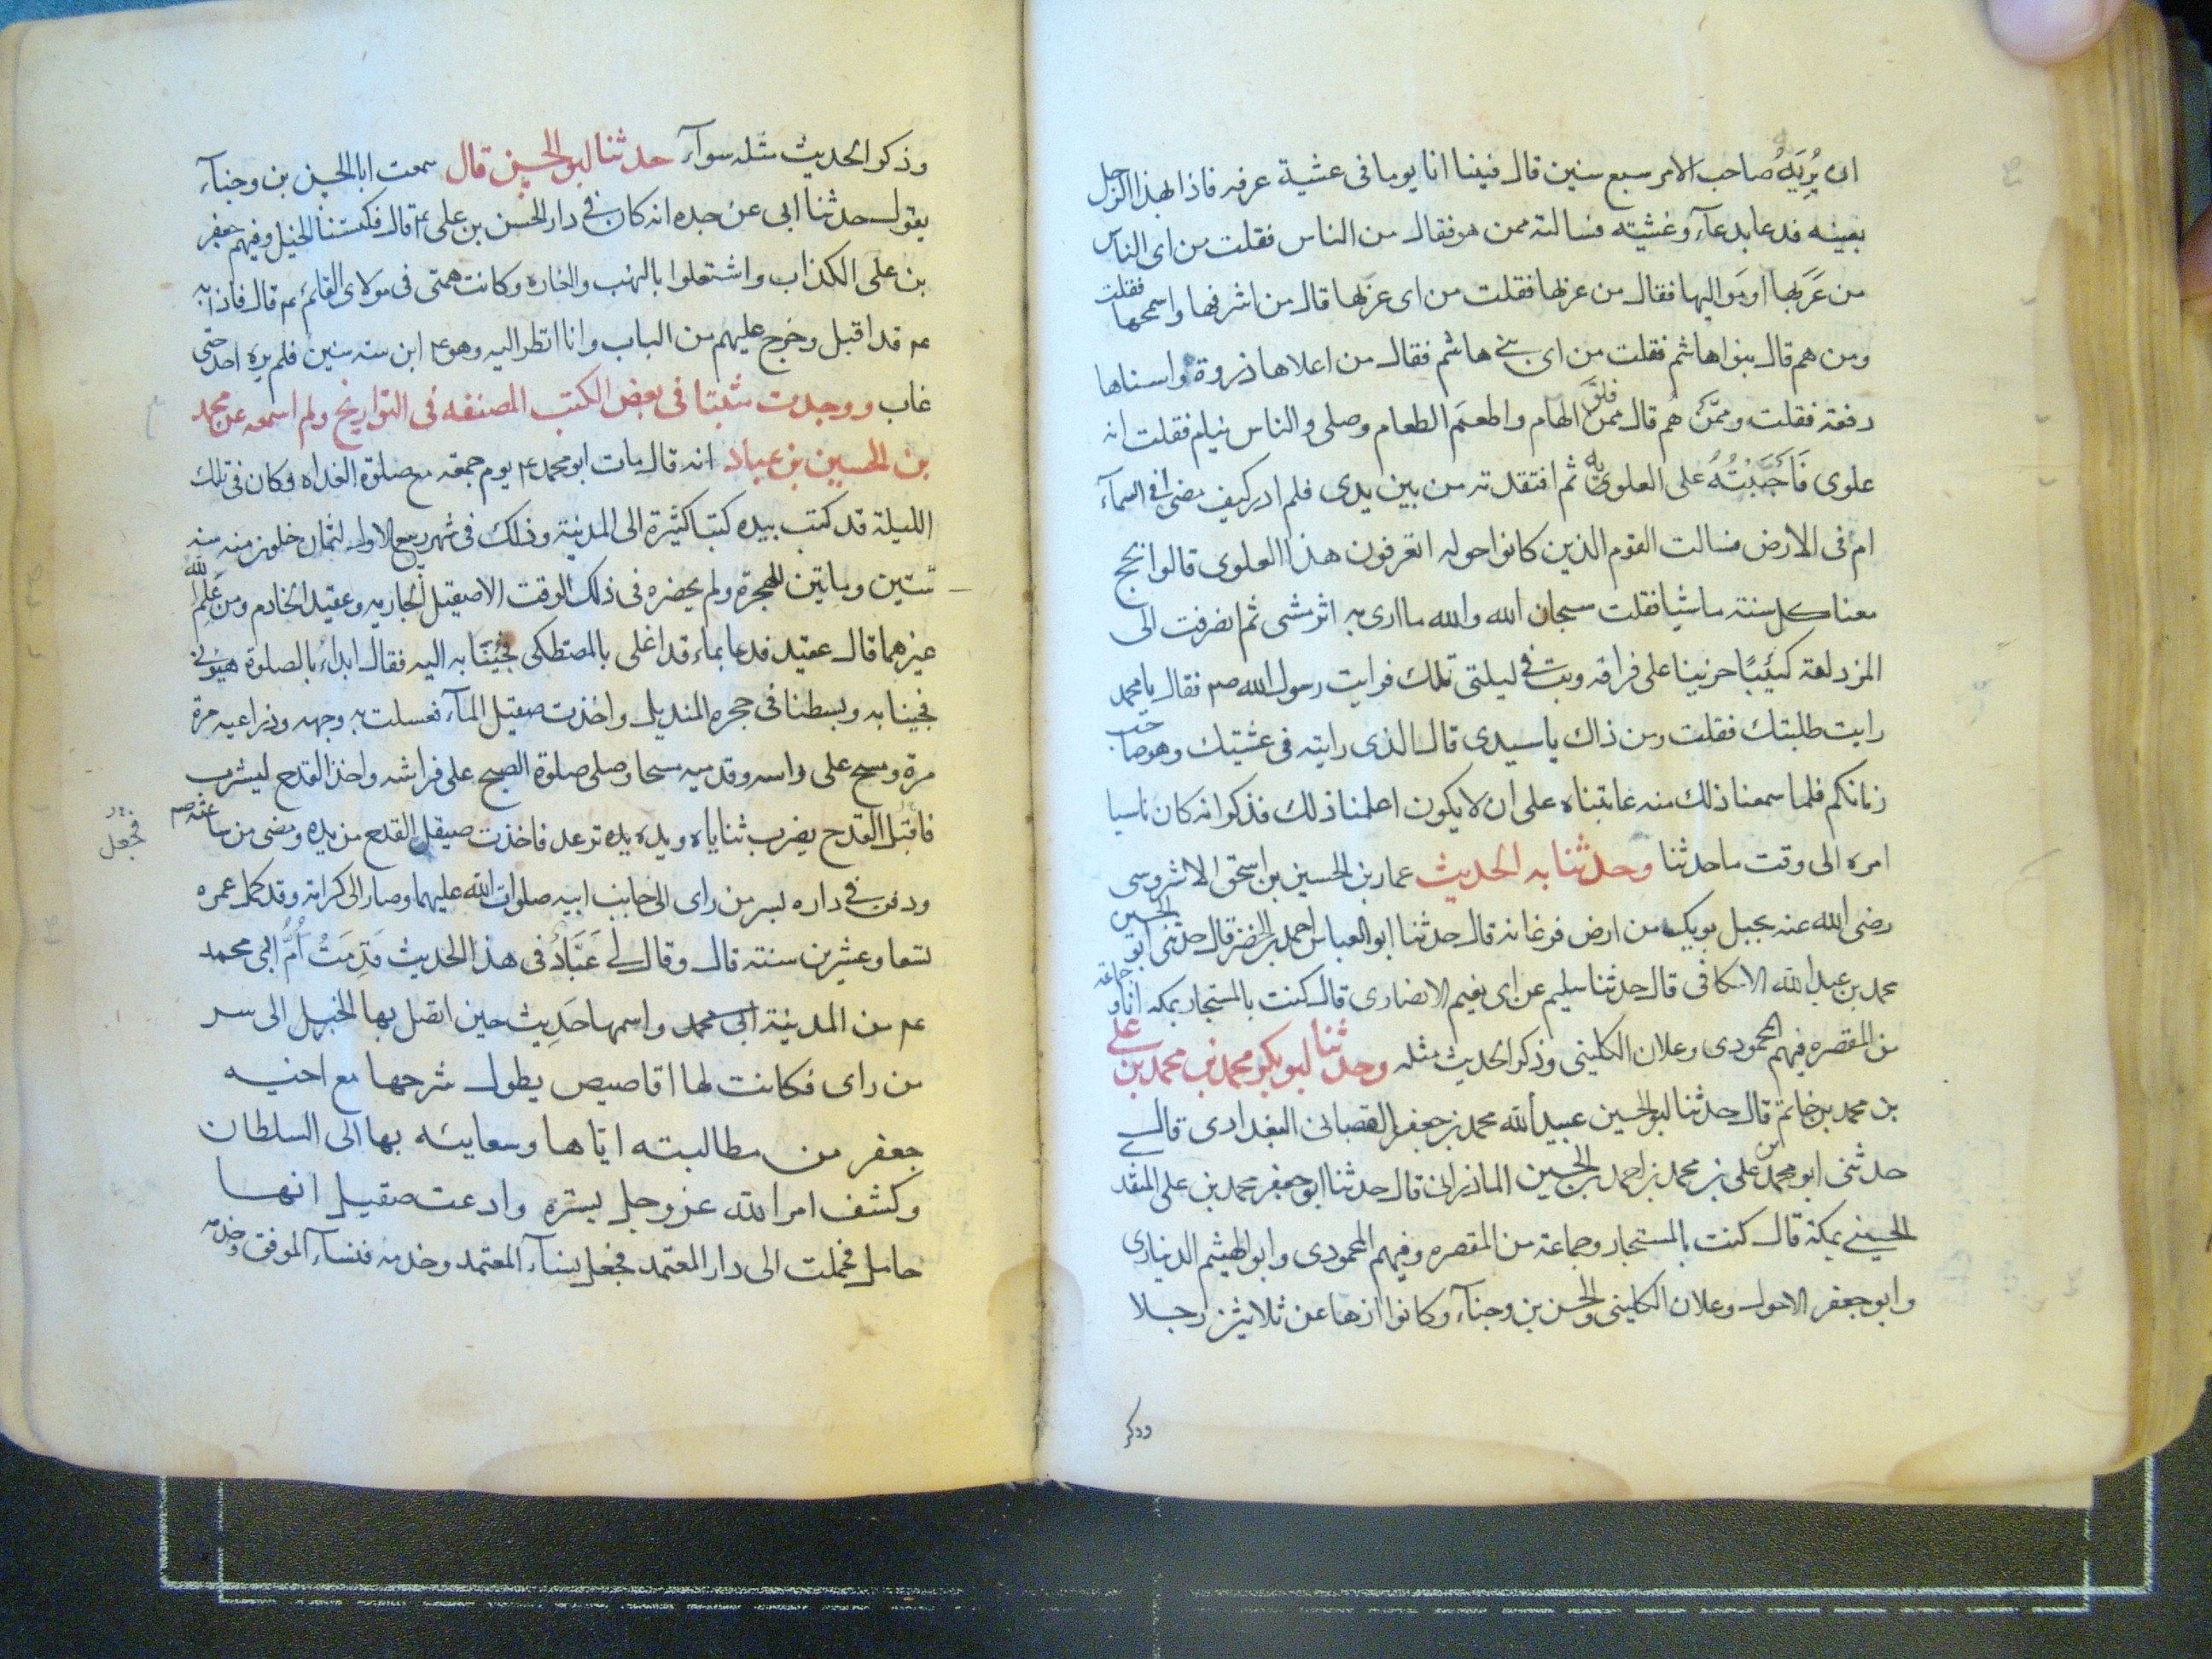 ان يُرِيَهُ صاحب الامر سبع سنين قال فبينا انا يوما فى عشية عرفه فاذا بهذا الرجل
بعينه فدعا بدعآء وغشيته فسالته ممن هو فقال من الناس فقلت من اى الناس
من عَرَبها او مَواليها فقال من عربها فقلت من اى عربها قال من اشرفها واسمحها فقلت
ومن هم قال بنوا هاشم فقلت من اى بنى هاشم فقال من اعلاها ذروة واسناها
رفعة فقلت وممَّن هُم قال ممن فلق الهام واطعمَ الطعام وصلى والناس نيام فقلت انه
علوى فَاَحْبَبْتُهُ على العلوية ثم افتقدته من بين يدى فلم ادر كيف مضى افى السمآء
ام فى الارض فسالت القوم الذين كانوا حوله اتعرفون هذا العلوى قالوا يحج
معنا كل سنة ماشيا فقلت سبحان الله والله ما ارى به اثر مشى ثم انصرفت الى
المزدلفة كيئبًا حزينا على فراقه وبت فى ليلتى تلك فرايت رسول الله صم فقال يا محمد
رايت طلبتك فقلت ومن ذاك يا سيدى قال الذى رايته فى عشيتك وهو صاحب
زمانكم فلما سمعنا ذلك منه عاتبناه على ان لا يكون اعلمنا ذلك فذكر انه كان ناسيا
امره الى وقت ما حدثنا وحدثنا به الحديث عمار بن الحسين بن اسحق الاشروسى
رضى الله عنه بجبل بوبك من ارض فرغانه قال حدثنا ابو العباس احمد بن الخضر قال حدثنى ابو الحسين
محمد بن عبد الله الاسكافى قال حدثنا سليم عن ابى نعيم الانصارى قال كنت بالمستجار بمكه انا وجماعة
من المقصره فيهم المحمودى وعلان الكلينى وذكر الحديث مثله وحدثنا ابو بكر محمد بن محمد بن على
بن محمد بن خاتم قال حدثنا ابو الحسين عبيد الله محمد بن جعفر القصبانى البغدادى قال
حدثنى ابو محمد على بن محمد بن احمد بن الحسين الماذرانى قال حدثنا ابو جعفر محمد بن على المنقد
الحسينى بمكة قال كنت بالمستجار وجماعة من المقصره وفيهم المحمودى وابو الهيثم الدينارى
وابو جعفر الاحول وعلان الكلينى والحسن بن وجنآء وكانوا ازها عن ثلاثين رجلا
وذكر
وذكر الحديث مثله سوآء حدثنا ابو الحسين قال سمعت ابا الحسين بن وجنآء
يقول حدثنا ابى عن جده انه كان فى دار الحسن بن على ع قال فكبستنا الخيل وفيهم جعفر
بن على الكذاب واشتغلوا بالنهب والغاره وكانت همتى فى مولاى القائم عم قال فاذا به
عم قد اقبل وخرج عليهم من الباب وانا انظر اليه وهو ع ابن سته سنين فلم يره احد حتى
غاب ووجدت مثبتا فى بعض الكتب المصنفه فى التواريخ ولم اسمعه عن محمد
بن الحسين بن عباد انه قال مات ابو محمد ع يوم جمعه مع صلوة الغداه وكان فى تلك
الليلة قد كتب بيده كتبا كثيرة الى المدينة وذلك فى شهر ربيع الاول لثمان خلون منه سنه
ستين وماتين للهجرة ولم يحضره فى ذلك الوقت الا صقيل الجاريه وعقيد الخادم ومن عَلِمَ الله
غيرهما قال عقيد فدعا بماء قد اغلى بالمصطكى فجئنا به اليه فقال ابداء بالصلوة هيئونى
فجينا به وبسطنا فى حجره المنديل واخذت صقيل المآء فغسلت به وجهه وذراعيه مرة
مرة ومسح على راسه وقدميه مسحا وصلى صلوة الصبح على فراشه واخذ القدح ليشرب
فاقبل القدح يضرب ثناياه ويده يده ترعد فاخذت صيقل القدح من يده ومضى من ساعته صم
فجعل
ودفن فى داره بسر من راى الى جانب ابيه صلوات الله عليهما وصار الى كرامة وقد كمل عمره
تسعا وعشرين سنة قال وقال لى عَبَّادُ فى هذا الحديث قَدِمَتْ اُمُّ ابى محمد
عم من المدينة ابى محمد واسمها حَدِيث حين اتصل بها الخبر الى سر
من راى فكانت لها اقاصيص يطول شرحها مع اخيه
جعفر من مطالبته اياها وسعايته بها الى السلطان
وكشف امر الله عز وجل بستره وادعت صقيل انها
حامل فحملت الى دار المعتمد فجعل نسآء المعتمد وخدمه فنسآء الموفق وخدمه